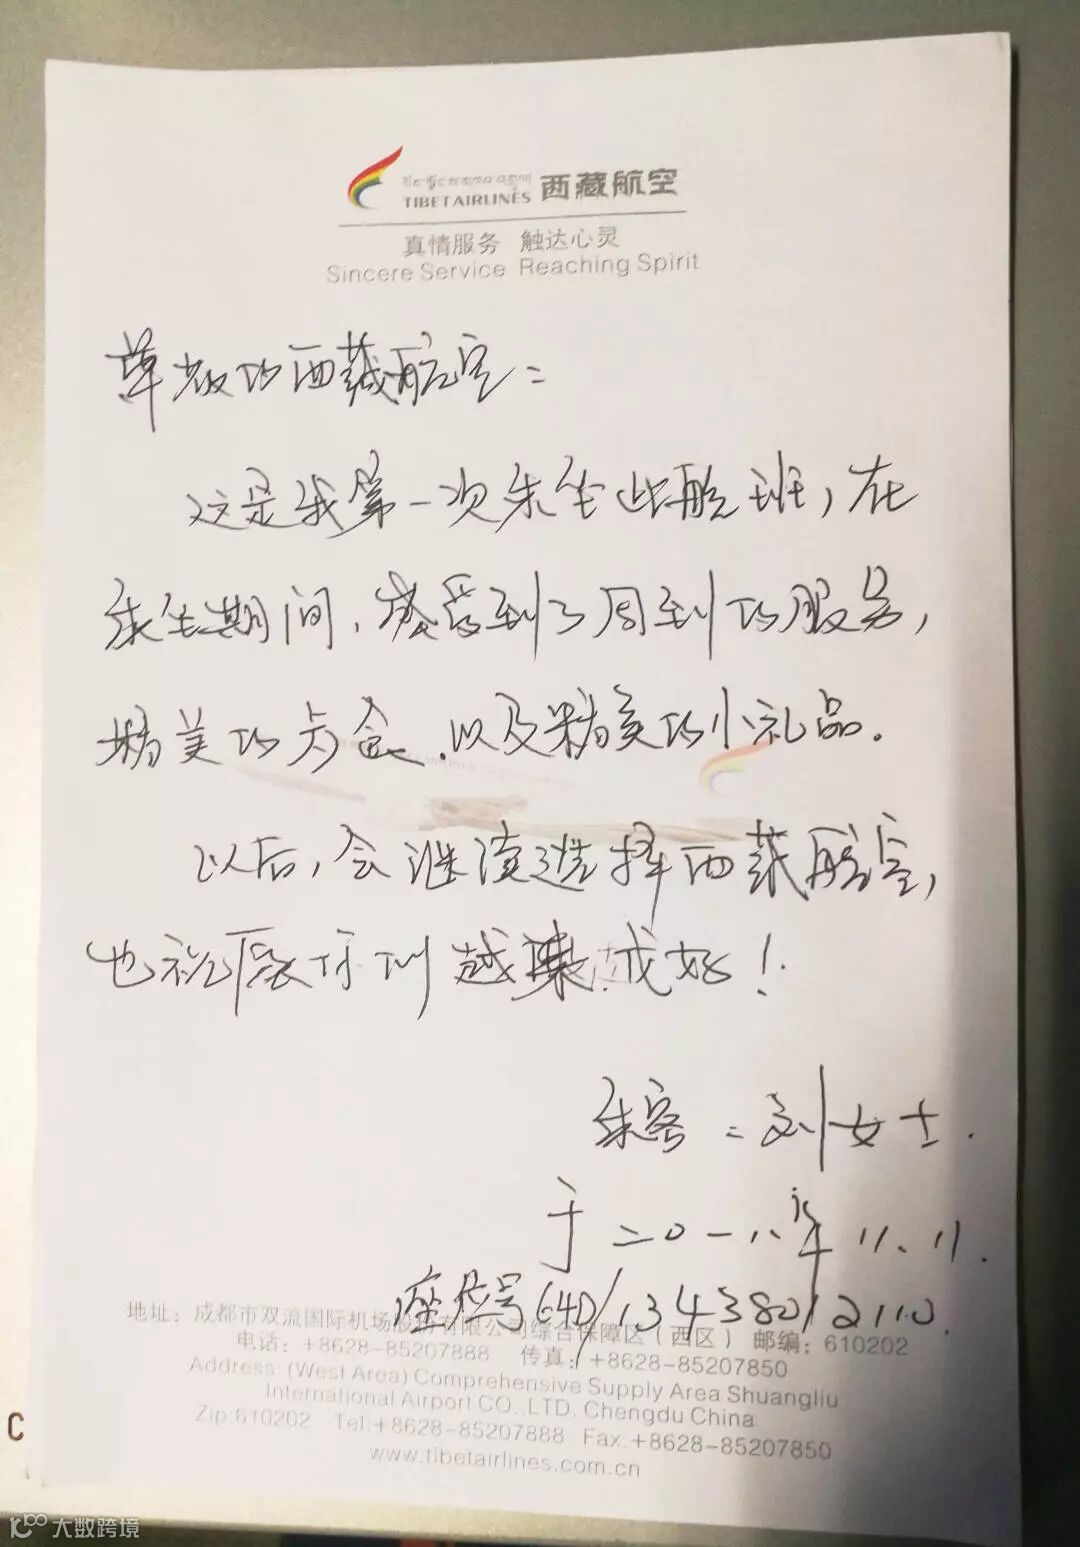 TIBET AIRLINES 西藏航空
真情服务 触达心灵
Sincere Service Reaching Spirit
尊敬的西藏航空：
这是我第一次乘坐此航班，在
乘坐期间，感受到了周到的服务，
精美的点食，以及精美的小礼品。
以后，会继续选择西藏航空，
也祝愿你们越来越好！
乘客：刘女士.
于二〇一八年11.11.
座位号(64D)13438012110
地址：成都市双流国际机场股份有限公司综合保障区（西区） 邮编：610202
电话：+8628-85207888 传真：+8628-85207850
Address: (West Area) Comprehensive Supply Area Shuangliu
International Airport CO.,LTD. Chengdu China
Zip:610202 Tel:+8628-85207888 Fax:+8628-85207850
www.tibetairlines.com.cn
C
大数跨境